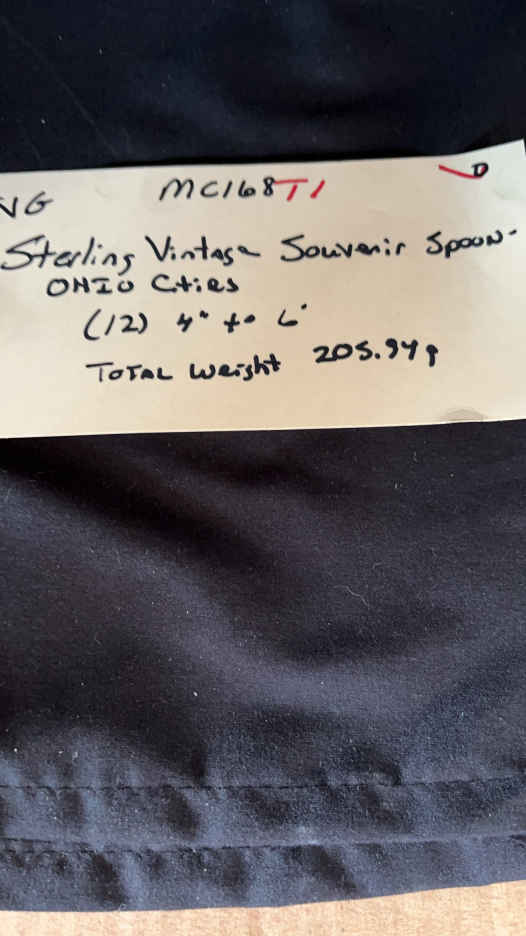 NG MC168T1 D
Sterling Vintage Souvenir Spoon-
OHIO Cties
(12) 4" to 6"
TOTAL Weight 205.94g